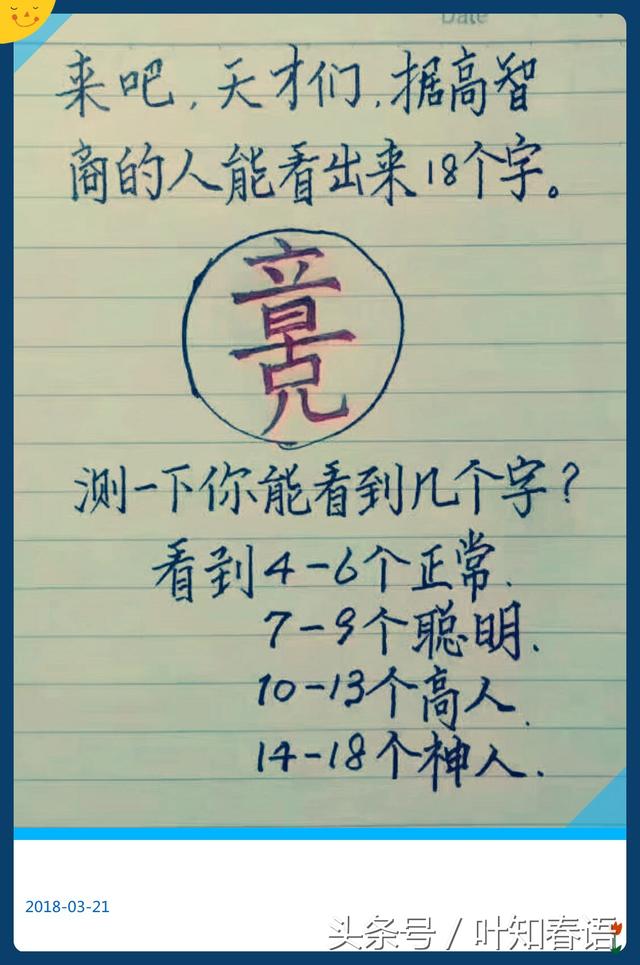 Date
来吧,天才们,据高智
商的人能看出来18个字。
测一下你能看到几个字?
看到4-6个正常.
7-9个聪明.
10-13个高人.
14-18个神人.
2018-03-21
头条号/叶知春语